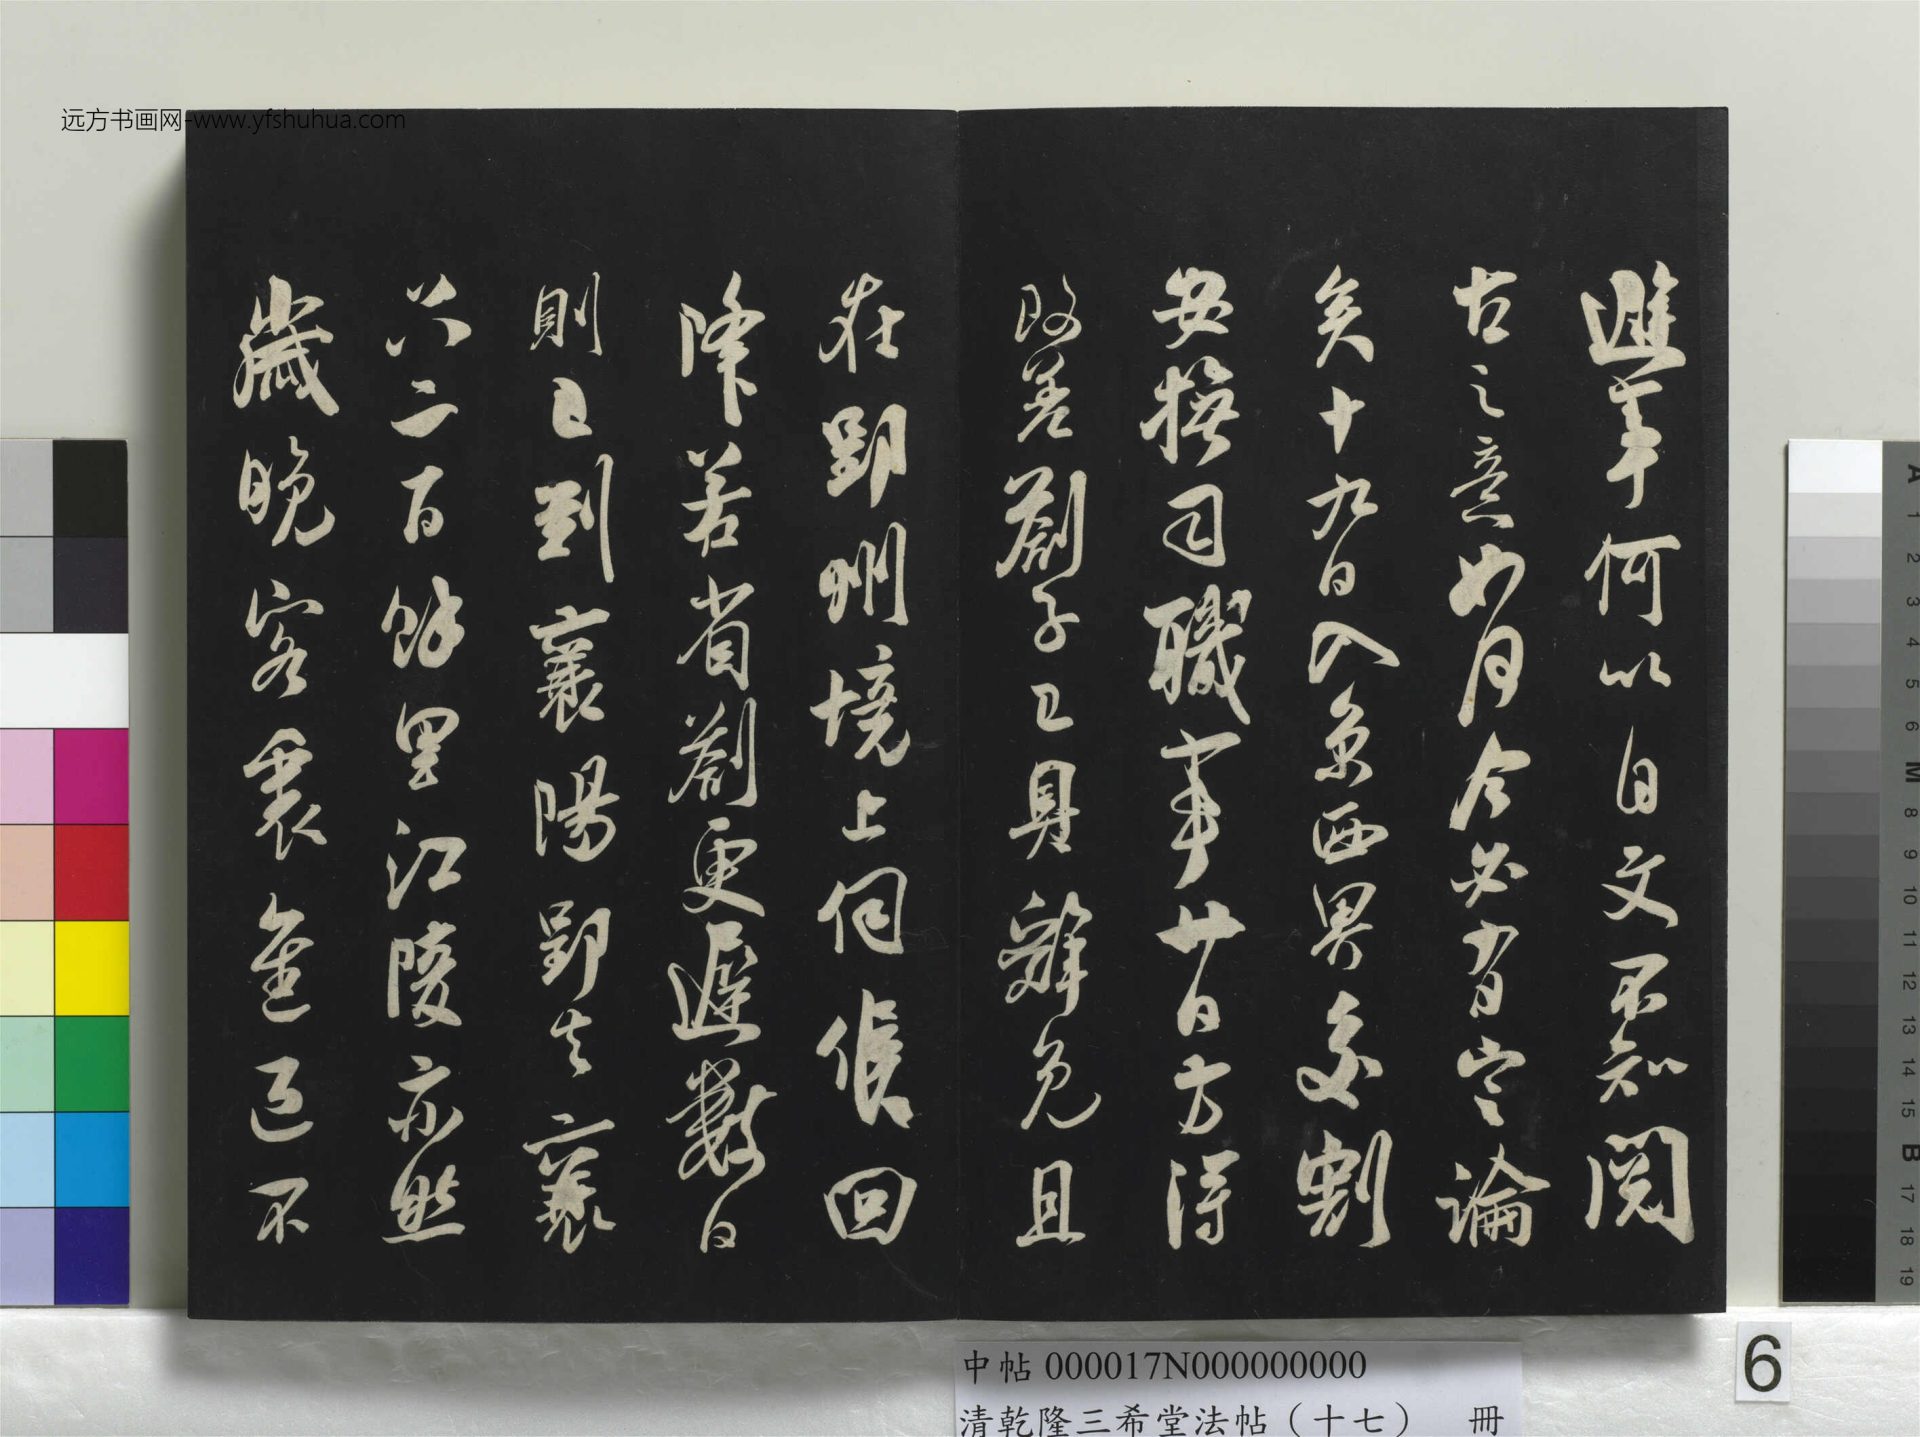 远方书画网-www.yfshuhua.com
進率何以自文不知閱
古之意如何今必有定論
矣十九日入京西界交割
安撫司職事廿日方得
改差劄子已具辭免且
在郢州境上伺候回
降若省劄更遲數日
則已到襄陽郢去襄
六二百餘里江陵亦然
歲晚客裏進退不
中帖 000017N000000000
清乾隆三希堂法帖（十七） 冊
6
A 1 2 3 4 5 6 M 8 9 10 11 12 13 14 15 B 17 18 19